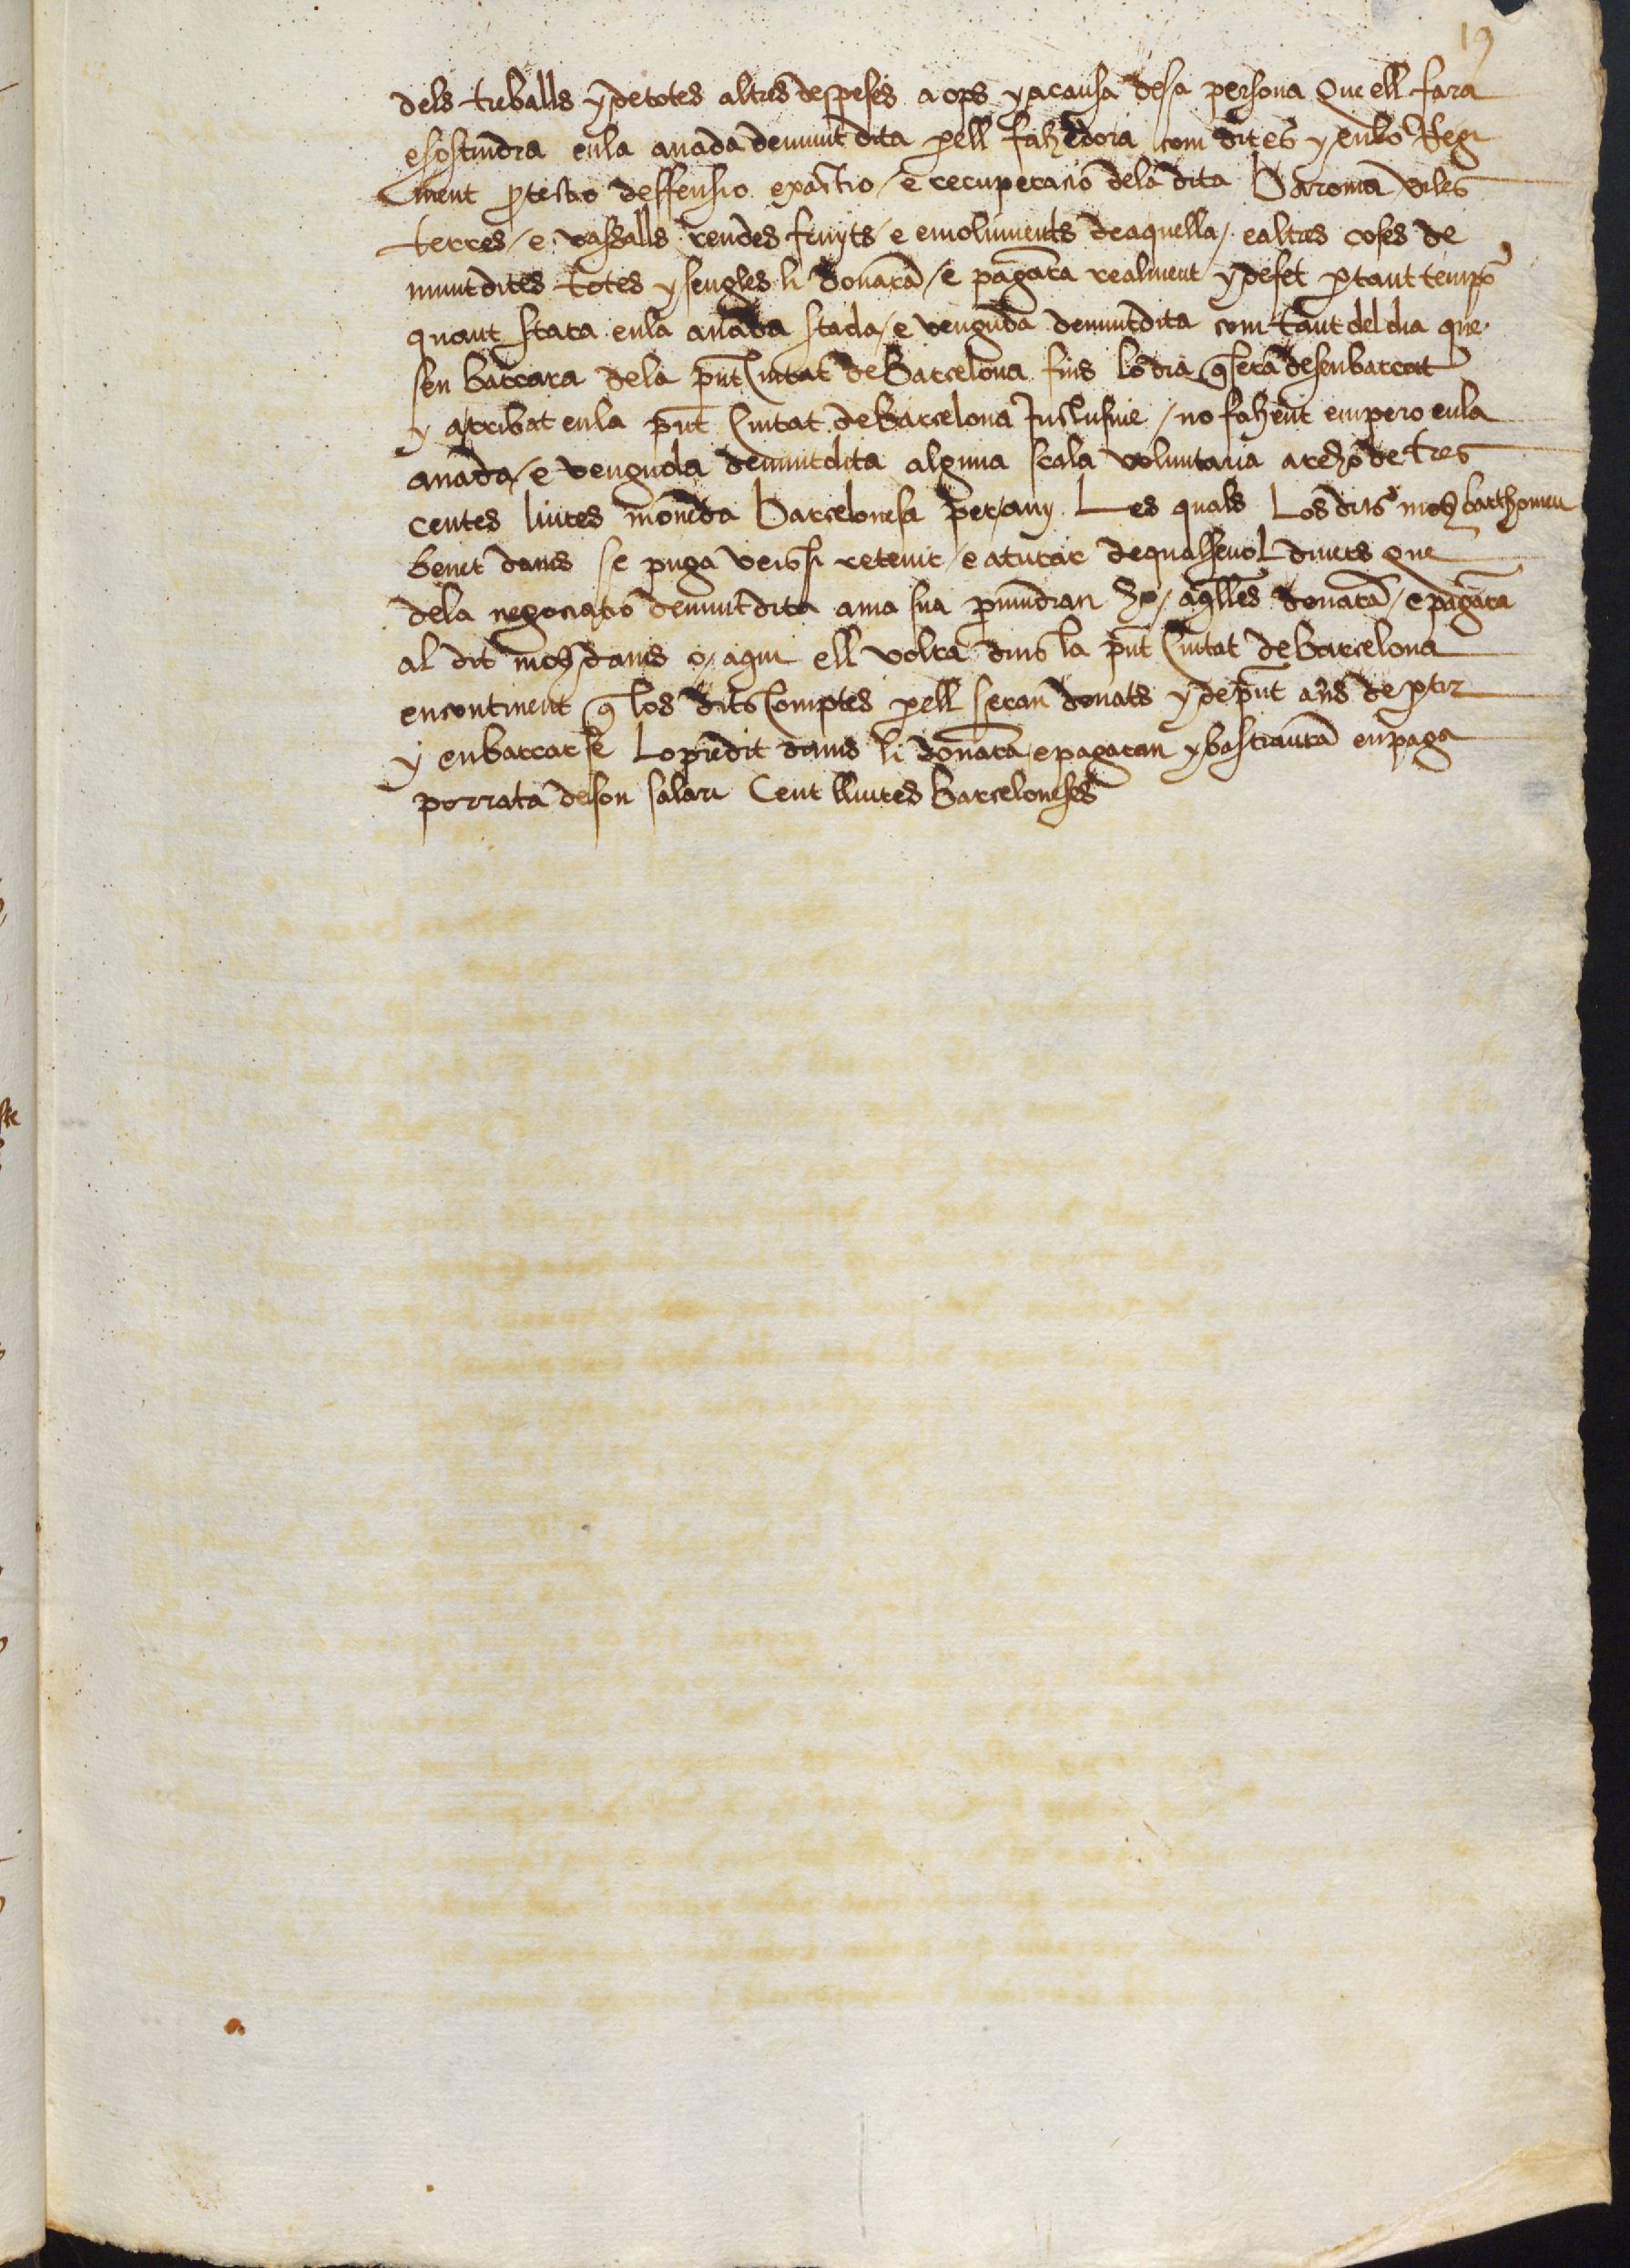 19
dels treballs y de totes altres despeses a ops y a causa de sa persona que ell fara
e sostindra en la anada demunt dita per ell fahedora com dit es y en lo Regi
ment protectio deffensio exactio / e recuperacio de la dita Baronia viles
terres / e vassalls rendes fruyts / e emoluments de aquella / e altres coses de
munt dites totes y sengles li donara / e pagara realment y de fet per tant temps
quant stara en la anada stada / e venguda demunt dita comtant del dia que
sen barcara de la pnt Ciutat de Barcelona fins lo dia q sera desenbarcat
y arribat en la pnt Ciutat de Barcelona Inclusive / no fahent empero en la
anada / e venguda demunt dita alguna scala voluntaria a reho de tres
centes liures moneda Barcelonesa per any Les quals Lo dit moss barthomeu
benet danis se puga vers si retenir / e aturar de qualsevol diners que
de la negociatio demunt dita a ma sua pervindran ho / aqlles donara / e pagara
al dit moss danis o / a qui ell volra dins la pnt Ciutat de Barcelona
encontinent q los dits Comptes per ell seran donats y de pnt ans de ptir
y enbarcar se Lo predit danis li donara e pagaran y bastrauran en paga
porrata de son salari Cent lliures Barceloneses